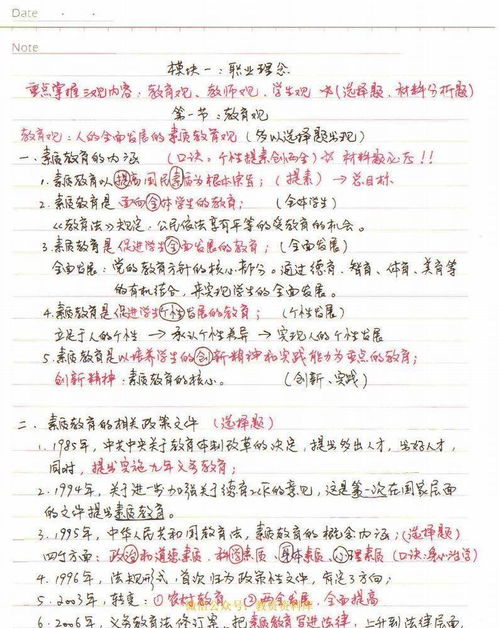 Date
Note
模块一：职业理念
重点掌握三观内容：教育观、教师观、学生观 ☆(选择题、材料分析题)
第一节：教育观
教育观：人的全面发展的素质教育观 (多以选择题出现)
一、素质教育的内涵 (口诀：个性提素创两全) ☆ 材料题必态!!
1.素质教育以提高国民素质为根本宗旨； (提素) → 总目标
2.素质教育是面向全体学生的教育； (全体学生)
《教育法》规定，公民依法享有平等的受教育的机会。
3.素质教育是促进学生全面发展的教育； (全面发展)
全面发展：党的教育方针的核心部分。通过德育、智育、体育、美育等
的有机结合，来实现学生的全面发展。
4.素质教育是促进学生个性发展的教育； (个性发展)
立足于人的个性 → 承认个性差异 → 实现人的个性发展
5.素质教育是以培养学生的创新精神和实践能力为重点的教育；
创新精神：素质教育的核心。 (创新、实践)
二、素质教育的相关政策文件 (选择题)
1.1985年，中共中央关于教育体制改革的决定，提出多出人才，出好人才，
同时，提出实施九年义务教育；
2.1994年，关于进一步加强关于德育工作的意见，这是第一次在国家层面
的文件提出素质教育。
3.1995年，中华人民共和国教育法，素质教育的概念内涵；(选择题)
四个方面：政治和道德素质、科学素质、身体素质、心理素质 (口诀：身心政学)
4.1996年，法规形式，首次归为政策性文件，有是3方向；
5.2003年，转变：①农村教育 ②两全发展，全面提高
微信公众号：教资资料库
6.2006年，义务教育法修订案，把素质教育写进法律，上升到法律层面，